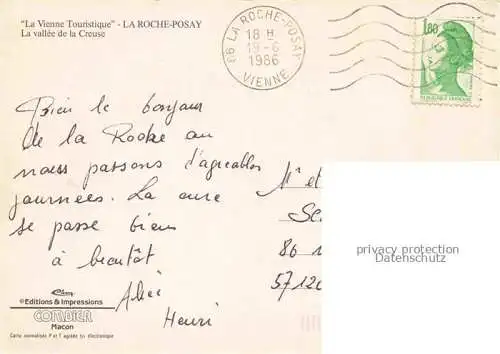 "La Vienne Touristique" - LA ROCHE-POSAY
La vallée de la Creuse
86 LA ROCHE-POSAY
18 H
19-6
1986
VIENNE
1,80
Bien le bonjour
de la Roche ou
nous passons d'agreables
journees. La cure
se passe bien
à bientôt
Alice
Henri
Mr et
86 1
5712
privacy protection
Datenschutz
Editions & Impressions
COMBIER
Macon
Carte normalisée P et T agréée tri électronique